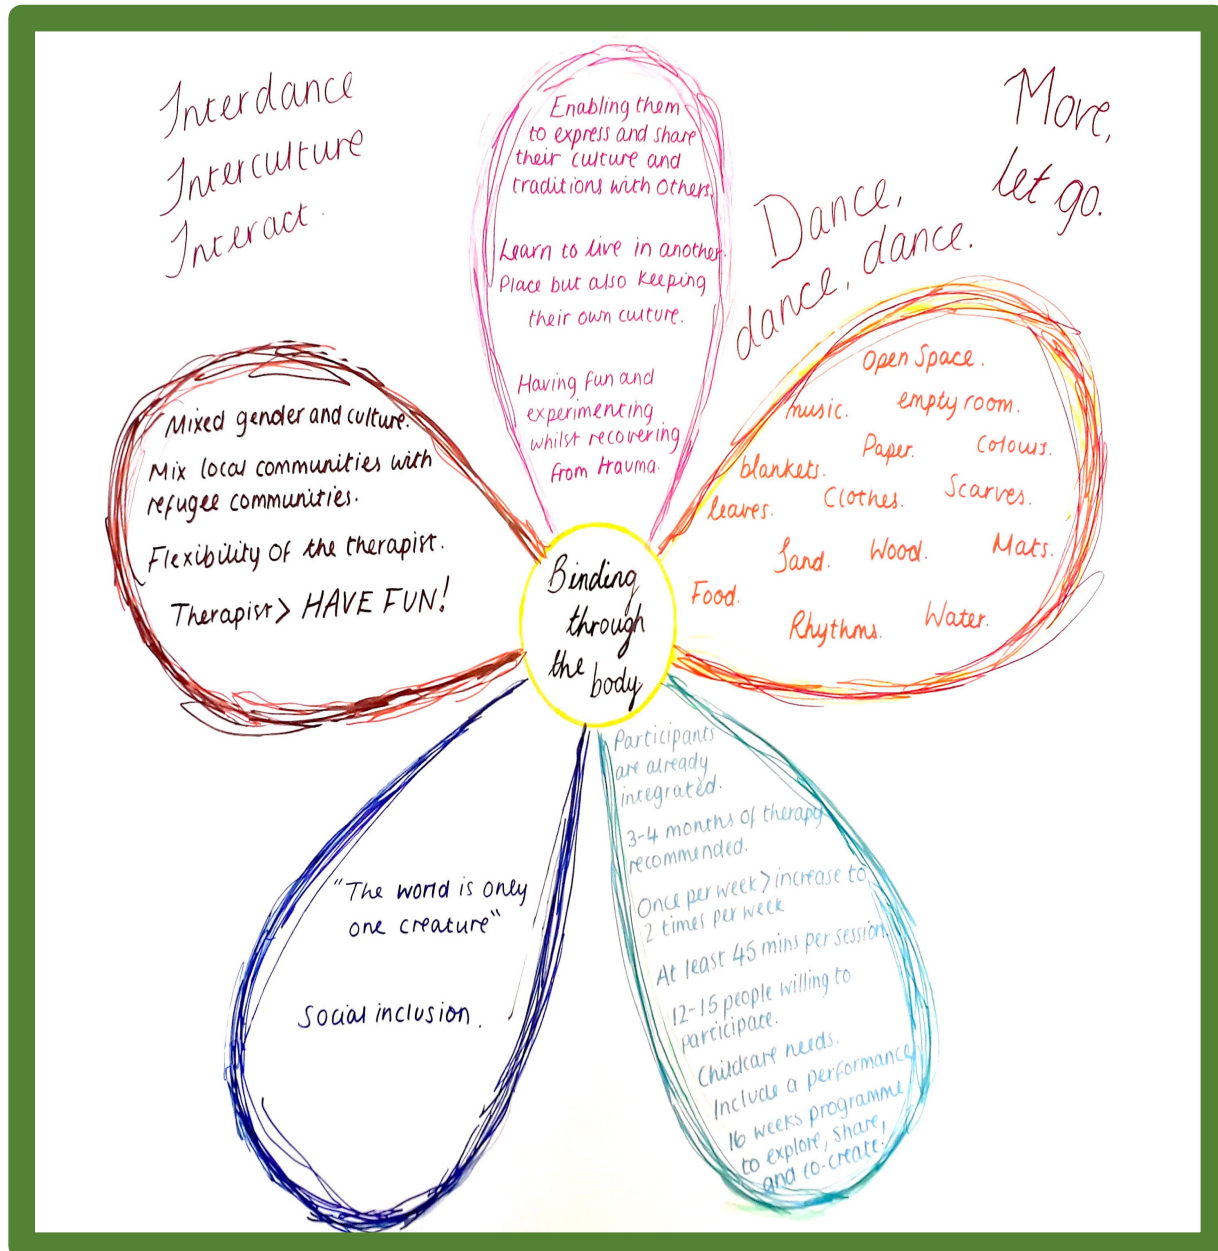 Interdance
Interculture
Interact.
Move,
let go.
Dance,
dance, dance.
Enabling them
to express and share
their culture and
traditions with others.
Learn to live in another
Place but also keeping
their own culture.
Having fun and
experimenting
whilst recovering
from trauma.
Mixed gender and culture.
Mix local communities with
refugee communities.
Flexibility of the therapist.
Therapist > HAVE FUN!
Open Space.
music. empty room.
Paper. Colours.
blankets.
leaves. Clothes. Scarves.
Sand. Wood. Mats.
Food.
Rhythms. Water.
Binding
through
the
body
"The world is only
one creature"
Social inclusion.
Participants
are already
integrated.
3-4 months of therapy
recommended.
Once per week > increase to
2 times per week
At least 45 mins per session.
12-15 people willing to
participate.
Childcare needs.
Include a performance
16 weeks programme
to explore, share,
and co-create.